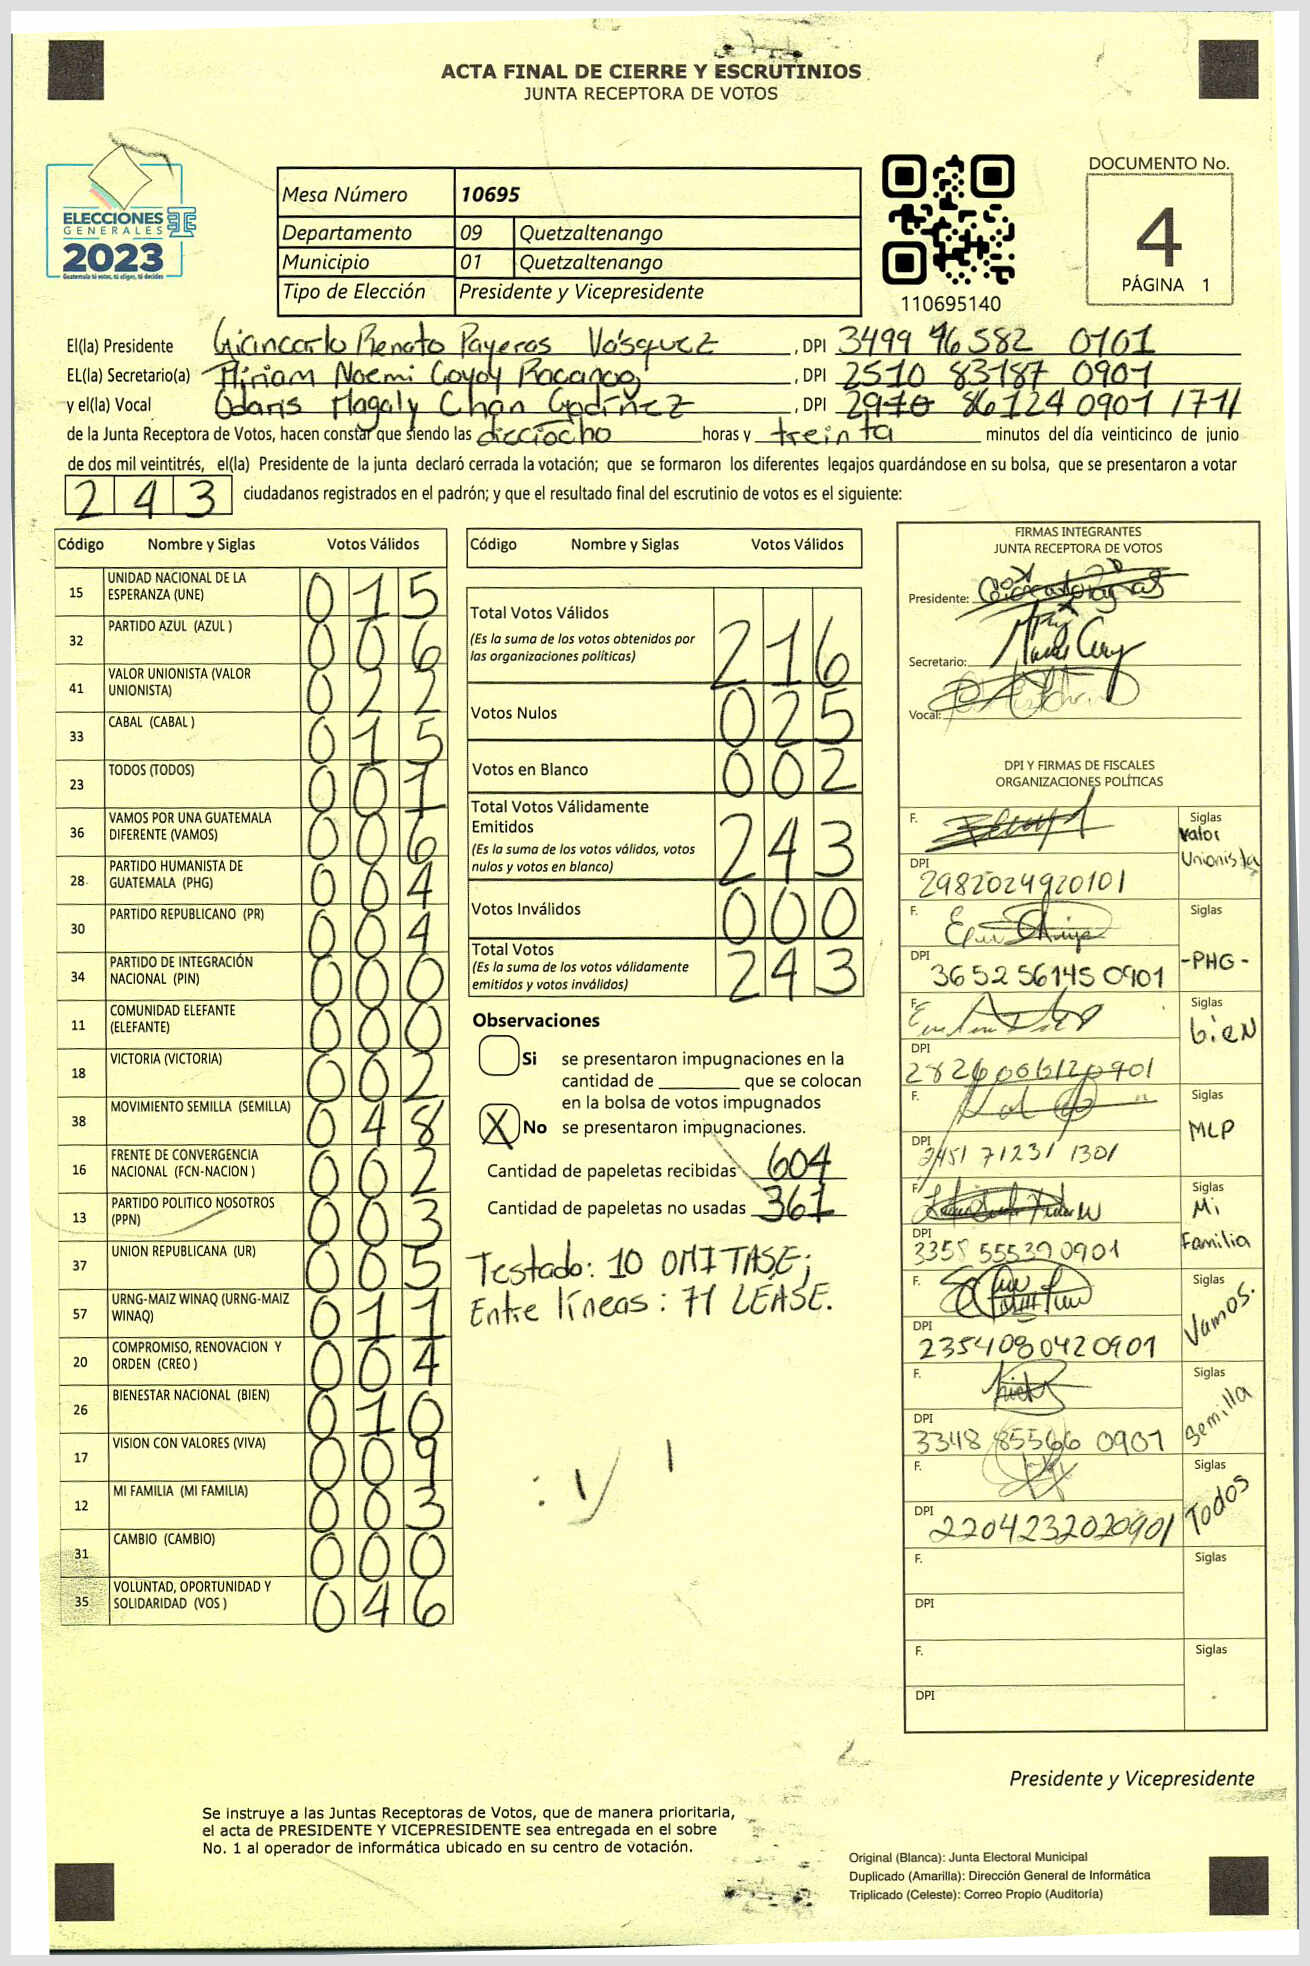 ACTA FINAL DE CIERRE Y ESCRUTINIOS
JUNTA RECEPTORA DE VOTOS
ELECCIONES
GENERALES
2023
Guatemala tú votas, tú eliges, tú decides
Mesa Número 10695
Departamento 09 Quetzaltenango
Municipio 01 Quetzaltenango
Tipo de Elección Presidente y Vicepresidente
110695140
DOCUMENTO No.
4
PÁGINA 1
El(la) Presidente Giancarlo Renato Payeras Vásquez, DPI 3499 96582 0101
EL(la) Secretario(a) Miriam Noemi Coyoy Racancoj, DPI 2510 83187 0901
y el(la) Vocal Odaris Magaly Chan Godínez, DPI 2970 86124 0901 /71/
de la Junta Receptora de Votos, hacen constar que siendo las dieciocho horas y treinta minutos del día veinticinco de junio
de dos mil veintitrés, el(la) Presidente de la junta declaró cerrada la votación; que se formaron los diferentes legajos guardándose en su bolsa, que se presentaron a votar
243 ciudadanos registrados en el padrón; y que el resultado final del escrutinio de votos es el siguiente:
Código Nombre y Siglas Votos Válidos
15 UNIDAD NACIONAL DE LA ESPERANZA (UNE) 015
32 PARTIDO AZUL (AZUL ) 006
41 VALOR UNIONISTA (VALOR UNIONISTA) 022
33 CABAL (CABAL ) 015
23 TODOS (TODOS) 001
36 VAMOS POR UNA GUATEMALA DIFERENTE (VAMOS) 006
28 PARTIDO HUMANISTA DE GUATEMALA (PHG) 004
30 PARTIDO REPUBLICANO (PR) 004
34 PARTIDO DE INTEGRACIÓN NACIONAL (PIN) 000
11 COMUNIDAD ELEFANTE (ELEFANTE) 000
18 VICTORIA (VICTORIA) 002
38 MOVIMIENTO SEMILLA (SEMILLA) 048
16 FRENTE DE CONVERGENCIA NACIONAL (FCN-NACION ) 002
13 PARTIDO POLITICO NOSOTROS (PPN) 003
37 UNION REPUBLICANA (UR) 005
57 URNG-MAIZ WINAQ (URNG-MAIZ WINAQ) 011
20 COMPROMISO, RENOVACION Y ORDEN (CREO ) 004
26 BIENESTAR NACIONAL (BIEN) 010
17 VISION CON VALORES (VIVA) 009
12 MI FAMILIA (MI FAMILIA) 003
31 CAMBIO (CAMBIO) 000
35 VOLUNTAD, OPORTUNIDAD Y SOLIDARIDAD (VOS ) 046
Código Nombre y Siglas Votos Válidos
Total Votos Válidos 216
(Es la suma de los votos obtenidos por
las organizaciones políticas)
Votos Nulos 025
Votos en Blanco 002
Total Votos Válidamente
Emitidos 243
(Es la suma de los votos válidos, votos
nulos y votos en blanco)
Votos Inválidos 000
Total Votos 243
(Es la suma de los votos válidamente
emitidos y votos inválidos)
Observaciones
Si se presentaron impugnaciones en la
cantidad de ________ que se colocan
en la bolsa de votos impugnados
X No se presentaron impugnaciones.
Cantidad de papeletas recibidas 604
Cantidad de papeletas no usadas 361
Testado: 10 OMITASE;
Entre líneas: 71 LÉASE.
FIRMAS INTEGRANTES
JUNTA RECEPTORA DE VOTOS
Presidente:
Secretario:
Vocal:
DPI Y FIRMAS DE FISCALES
ORGANIZACIONES POLÍTICAS
F. Siglas Valor Unionista
DPI 2982024920101
F. Siglas -PHG-
DPI 3652 56145 0901
F. Siglas biEN
DPI 2826006120901
F. Siglas MLP
DPI 2451 71231 1301
F. Siglas Mi Familia
DPI 3358 55539 0901
F. Siglas Vamos.
DPI 2354080420901
F. Siglas Semilla
DPI 3348 85566 0901
F. Siglas Todos
DPI 2204232020901
F. Siglas
DPI
F. Siglas
DPI
Presidente y Vicepresidente
Se instruye a las Juntas Receptoras de Votos, que de manera prioritaria,
el acta de PRESIDENTE Y VICEPRESIDENTE sea entregada en el sobre
No. 1 al operador de informática ubicado en su centro de votación.
Original (Blanca): Junta Electoral Municipal
Duplicado (Amarilla): Dirección General de Informática
Triplicado (Celeste): Correo Propio (Auditoría)